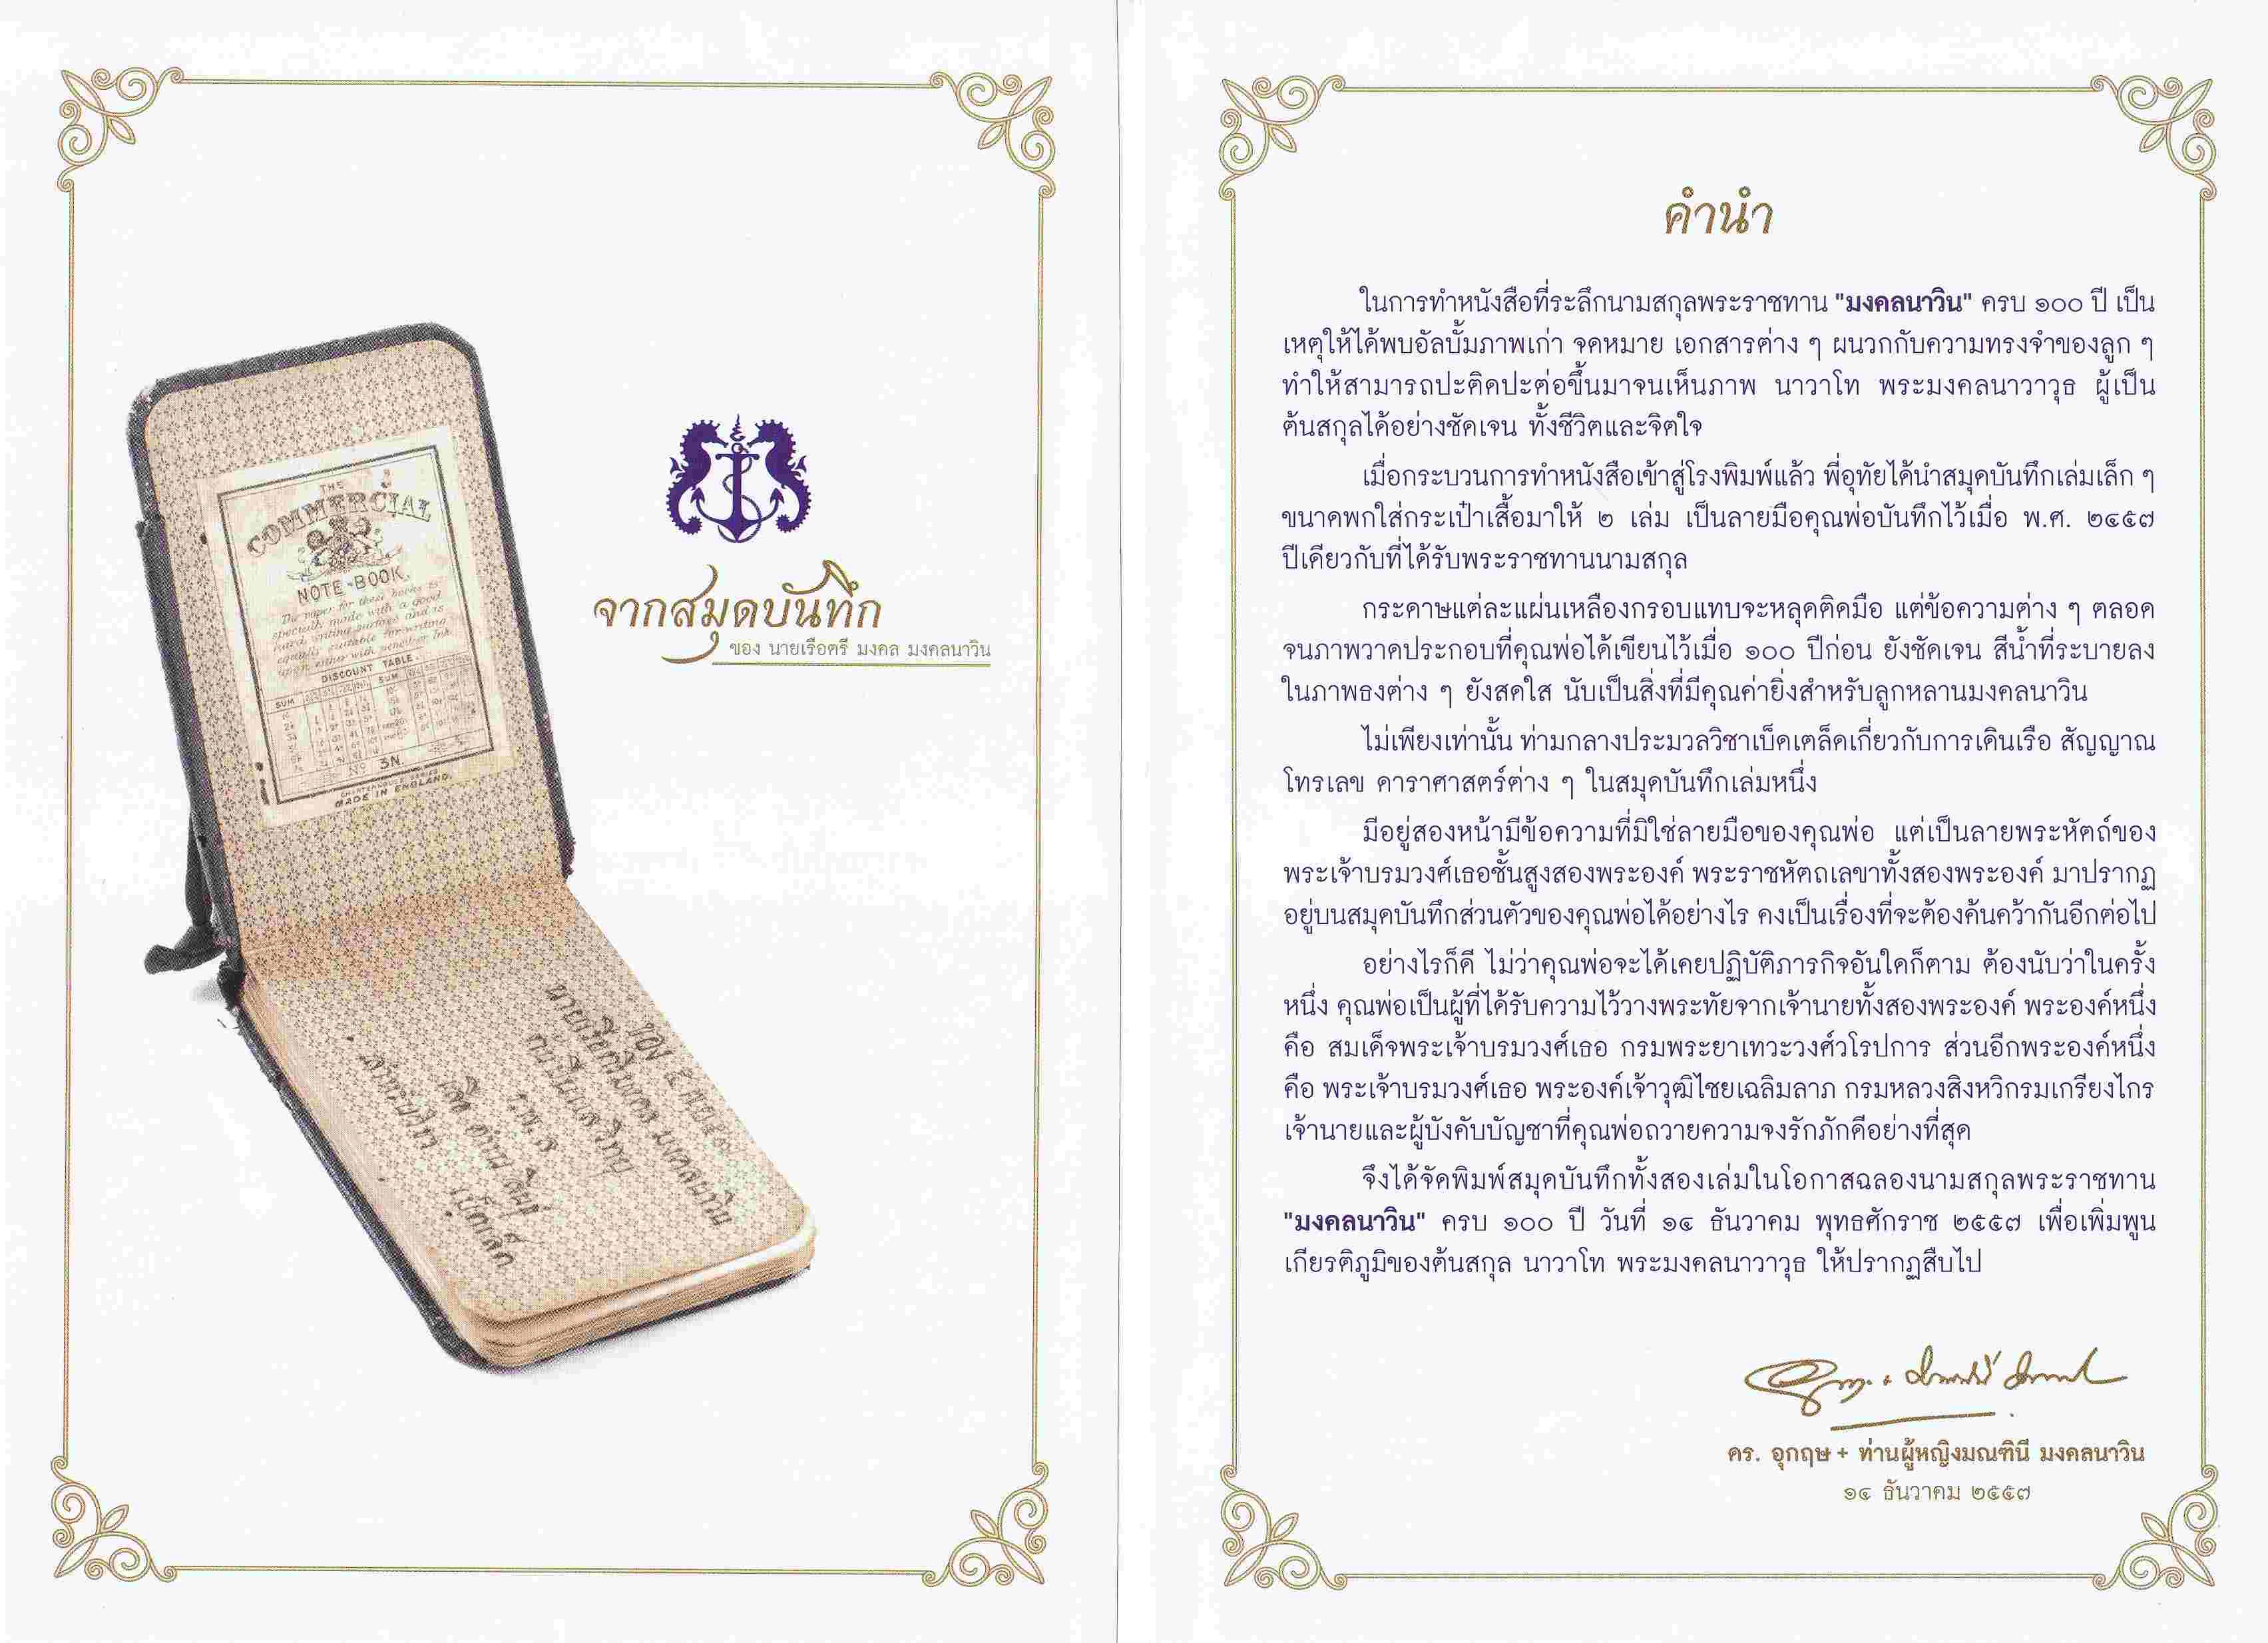 THE
COMMERCIAL
NOTE-BOOK.
The paper for these books is
specially made with a good
hard writing surface and is
equally suitable for writing
upon either with pencil or Ink
DISCOUNT TABLE.
SUM
SUM
No 3N.
CHARTERHOUSE SERIES
MADE IN ENGLAND.
ของ
นายเรือตรี มงคล มงคลนาวิน
สำหรับวิชา
เบ็ดเตล็ด
จากสมุดบันทึก
ของ นายเรือตรี มงคล มงคลนาวิน
คำนำ
ในการทำหนังสือที่ระลึกนามสกุลพระราชทาน "มงคลนาวิน" ครบ ๑๐๐ ปี เป็น
เหตุให้ได้พบอัลบั้มภาพเก่า จดหมาย เอกสารต่าง ๆ ผนวกกับความทรงจำของลูก ๆ
ทำให้สามารถปะติดปะต่อขึ้นมาจนเห็นภาพ นาวาโท พระมงคลนาวาวุธ ผู้เป็น
ต้นสกุลได้อย่างชัดเจน ทั้งชีวิตและจิตใจ
เมื่อกระบวนการทำหนังสือเข้าสู่โรงพิมพ์แล้ว พี่อุทัยได้นำสมุดบันทึกเล่มเล็ก ๆ
ขนาดพกใส่กระเป๋าเสื้อมาให้ ๒ เล่ม เป็นลายมือคุณพ่อบันทึกไว้เมื่อ พ.ศ. ๒๔๕๗
ปีเดียวกับที่ได้รับพระราชทานนามสกุล
กระดาษแต่ละแผ่นเหลืองกรอบแทบจะหลุดติดมือ แต่ข้อความต่าง ๆ ตลอด
จนภาพวาดประกอบที่คุณพ่อได้เขียนไว้เมื่อ ๑๐๐ ปีก่อน ยังชัดเจน สีน้ำที่ระบายลง
ในภาพธงต่าง ๆ ยังสดใส นับเป็นสิ่งที่มีคุณค่ายิ่งสำหรับลูกหลานมงคลนาวิน
ไม่เพียงเท่านั้น ท่ามกลางประมวลวิชาเบ็ดเตล็ดเกี่ยวกับการเดินเรือ สัญญาณ
โทรเลข ดาราศาสตร์ต่าง ๆ ในสมุดบันทึกเล่มหนึ่ง
มีอยู่สองหน้ามีข้อความที่มิใช่ลายมือของคุณพ่อ แต่เป็นลายพระหัตถ์ของ
พระเจ้าบรมวงศ์เธอชั้นสูงสองพระองค์ พระราชหัตถเลขาทั้งสองพระองค์ มาปรากฏ
อยู่บนสมุดบันทึกส่วนตัวของคุณพ่อได้อย่างไร คงเป็นเรื่องที่จะต้องค้นคว้ากันอีกต่อไป
อย่างไรก็ดี ไม่ว่าคุณพ่อจะได้เคยปฏิบัติภารกิจอันใดก็ตาม ต้องนับว่าในครั้ง
หนึ่ง คุณพ่อเป็นผู้ที่ได้รับความไว้วางพระทัยจากเจ้านายทั้งสองพระองค์ พระองค์หนึ่ง
คือ สมเด็จพระเจ้าบรมวงศ์เธอ กรมพระยาเทวะวงศ์วโรปการ ส่วนอีกพระองค์หนึ่ง
คือ พระเจ้าบรมวงศ์เธอ พระองค์เจ้าวุฒิไชยเฉลิมลาภ กรมหลวงสิงหวิกรมเกรียงไกร
เจ้านายและผู้บังคับบัญชาที่คุณพ่อถวายความจงรักภักดีอย่างที่สุด
จึงได้จัดพิมพ์สมุดบันทึกทั้งสองเล่มในโอกาสฉลองนามสกุลพระราชทาน
"มงคลนาวิน" ครบ ๑๐๐ ปี วันที่ ๑๔ ธันวาคม พุทธศักราช ๒๕๕๗ เพื่อเพิ่มพูน
เกียรติภูมิของต้นสกุล นาวาโท พระมงคลนาวาวุธ ให้ปรากฏสืบไป
ดร. อุกฤษ + ท่านผู้หญิงมณฑินี มงคลนาวิน
๑๔ ธันวาคม ๒๕๕๗